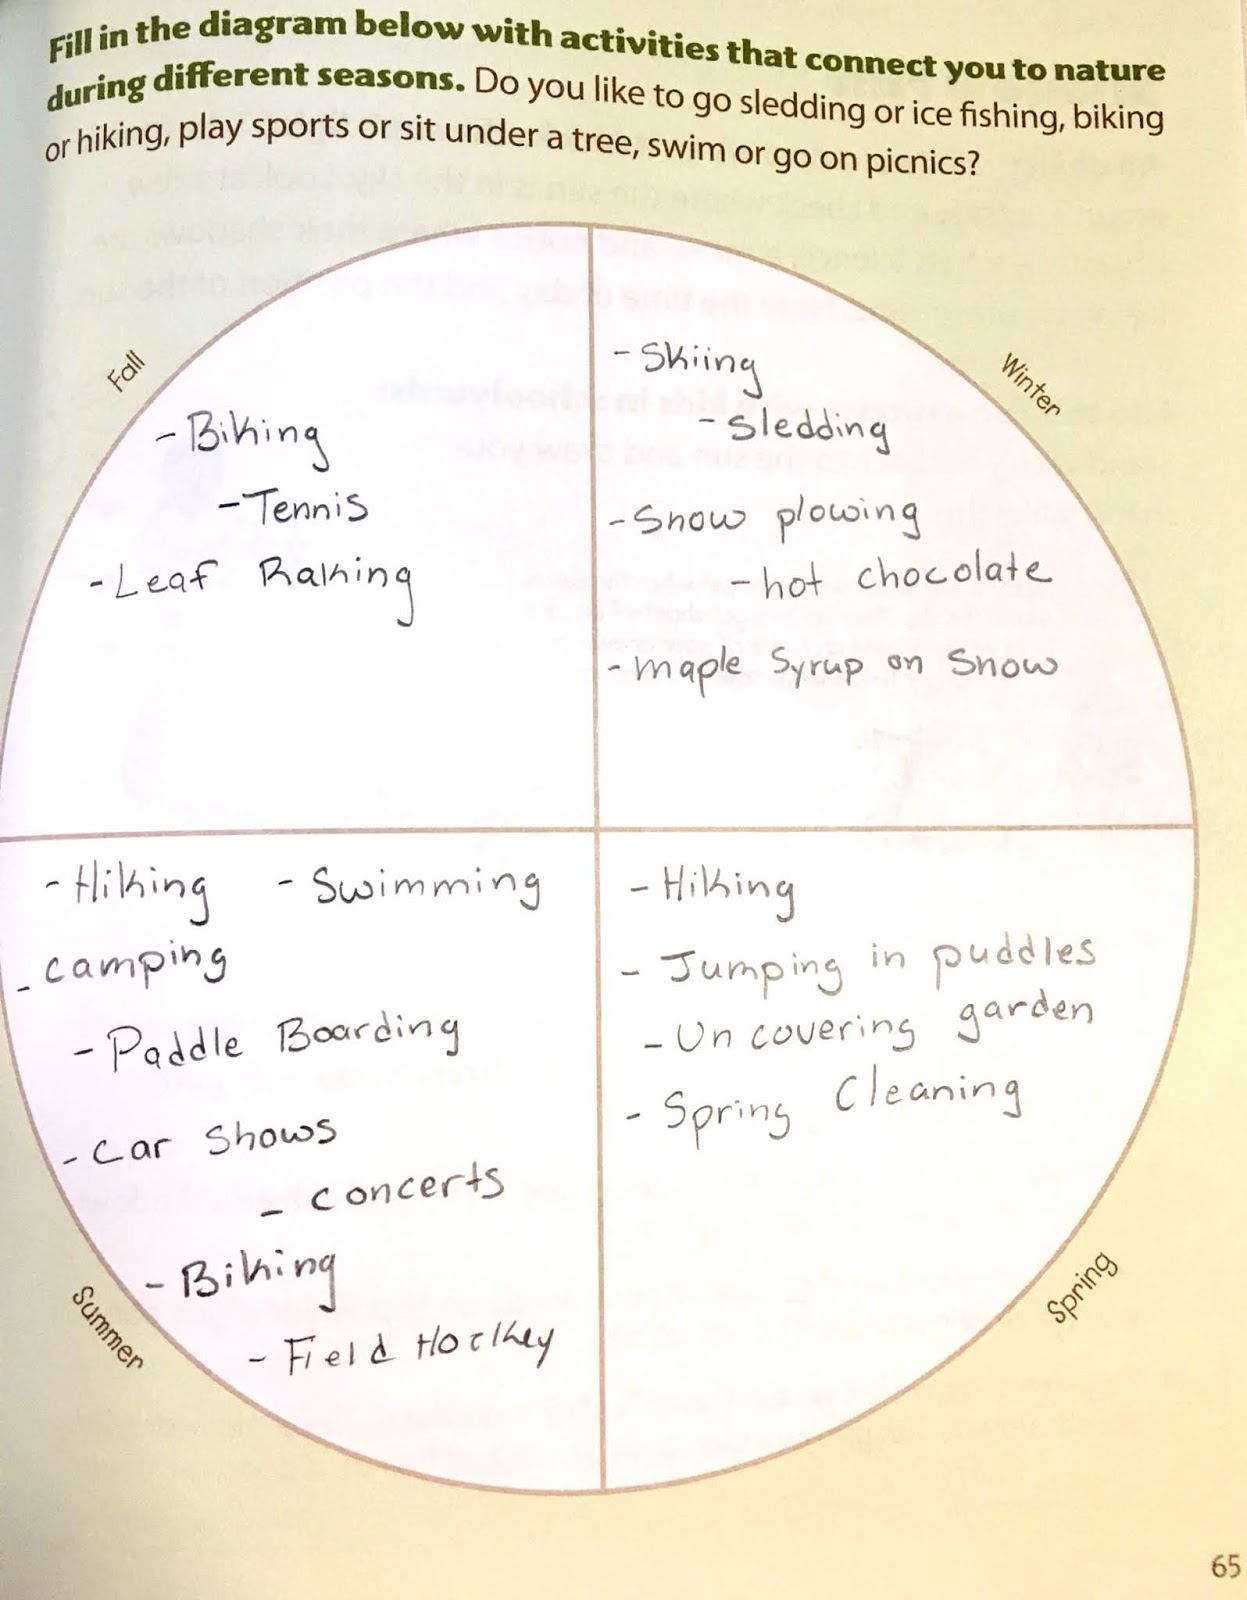 Fill in the diagram below with activities that connect you to nature
during different seasons. Do you like to go sledding or ice fishing, biking
or hiking, play sports or sit under a tree, swim or go on picnics?
Fall
- Biking
- Tennis
- Leaf Raking
Winter
- Skiing
- Sledding
- Snow plowing
- hot chocolate
- maple Syrup on Snow
Summer
- Hiking - Swimming
- camping
- Paddle Boarding
- Car Shows
- concerts
- Biking
- Field Hockey
Spring
- Hiking
- Jumping in puddles
- Uncovering garden
- Spring Cleaning
65